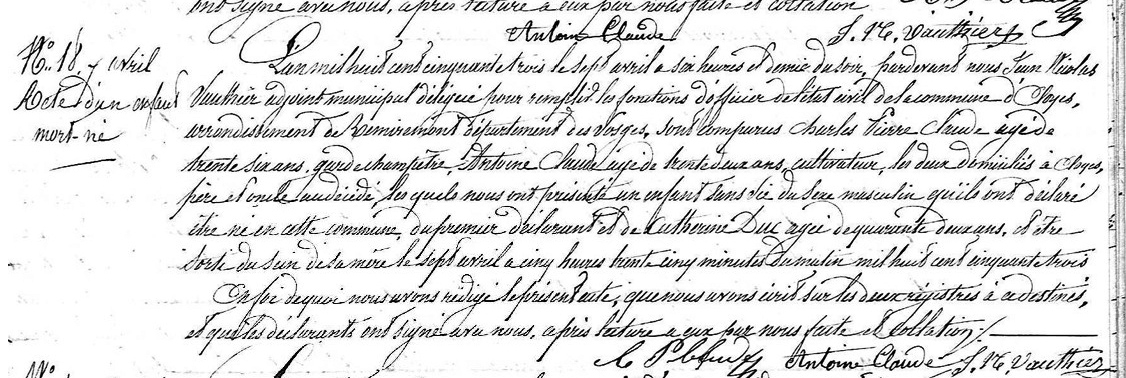 ont signé avec nous, après lecture à eux par nous faite et collation
Antoin Claude J. N. Vauthier
N.o 18. 7 avril
Acte d'un enfant
mort-né
L'an mil huit cent cinquante trois le sept avril a six heures et demie du soir, pardevant nous Jean Nicolas
Vauthier adjoint municipal délégué pour remplir les fonctions d'officier de l'état civil de la commune d'Eloyes,
arrondissement de Remiremont département des Vosges, sont comparus Charles Pierre Claude agé de
trente six ans, garde champêtre, Antoine Claude agé de trente deux ans, cultivateur, les deux domiciliés à Eloyes,
père et oncle au décédé, les quels nous ont présenté un enfant sans vie du sexe masculin qu'ils ont déclaré
être né en cette commune, du premier déclarant et de Catherine Duc agée de quarante deux ans, et être
sorti du sein de sa mère le sept avril a cinq heures trente cinq minutes du matin mil huit cent cinquante trois
En foi de quoi nous avons rédigé le présent acte, que nous avons écrit sur les deux régistres à ce destinés,
et que les déclarants ont signé avec nous, après lecture a eux par nous faite et collation ./.
C P Claude Antoin Claude J. N. Vauthier
N.o